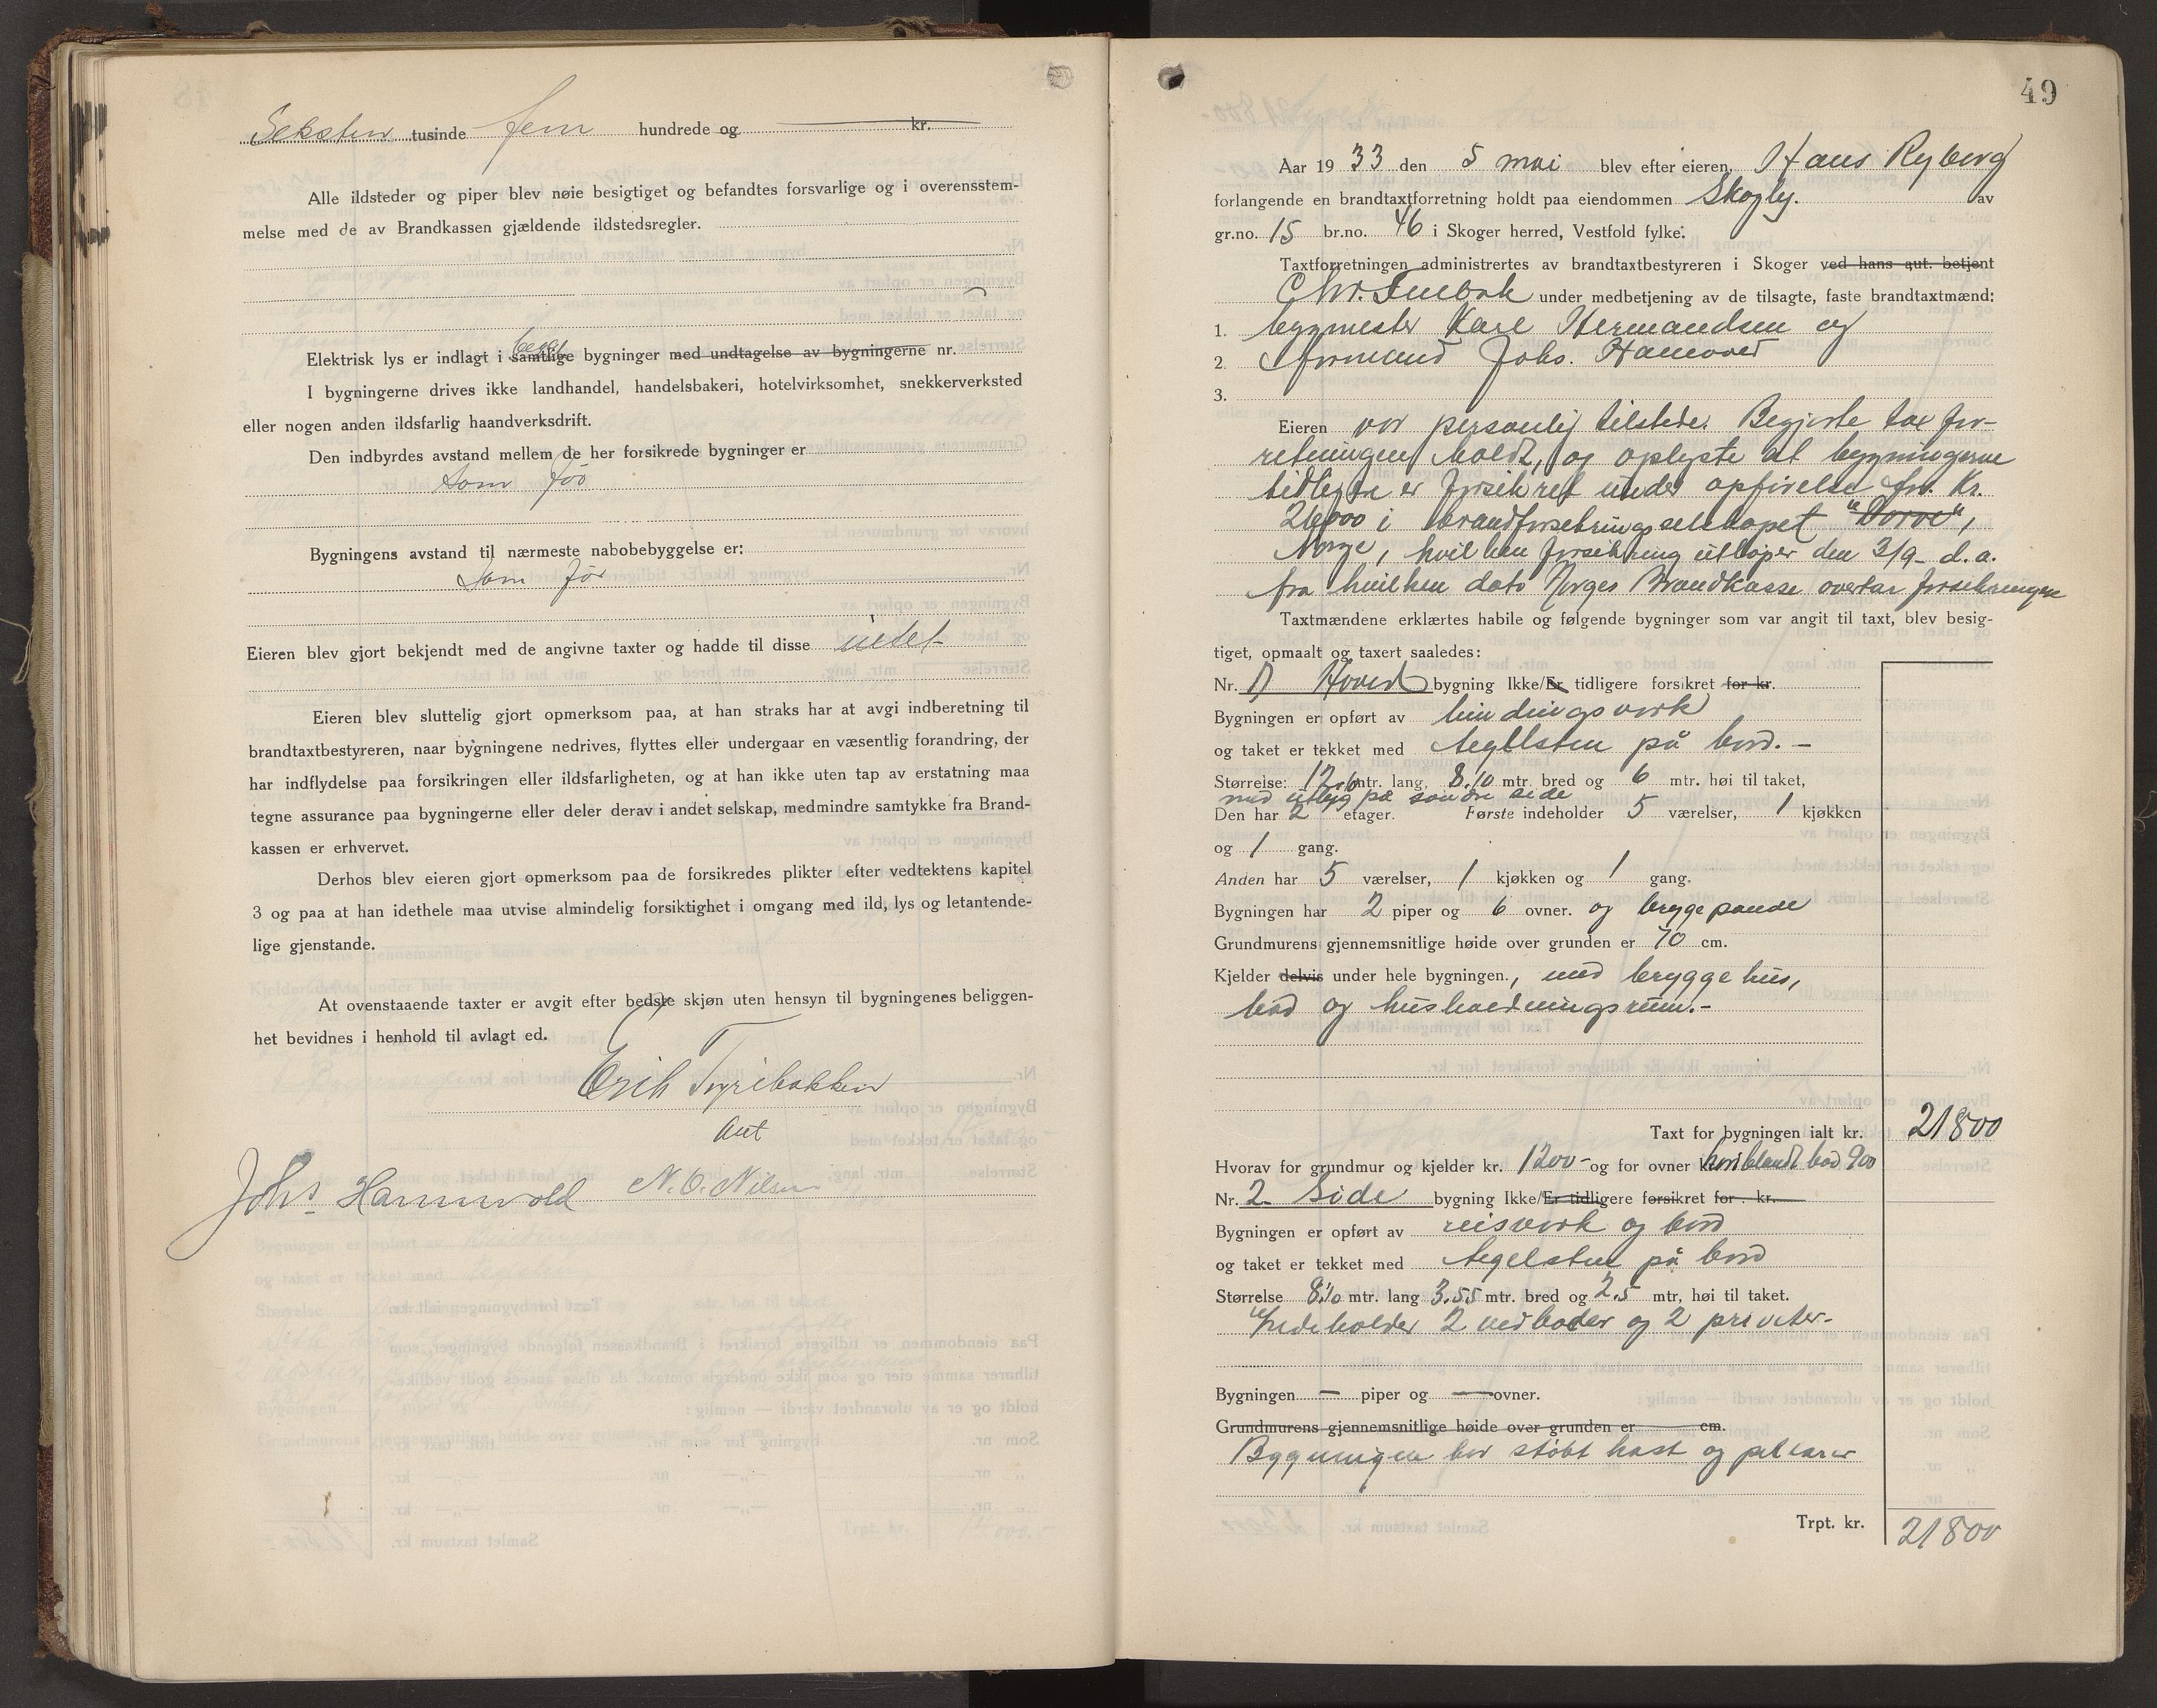 Seksten tusinde fem hundrede og kr.
Alle ildsteder og piper blev nøie besigtiget og befandtes forsvarlige og i overensstem-
melse med de av Brandkassen gjældende ildstedsregler.
Elektrisk lys er indlagt i samtlige begge bygninger med undtagelse av bygningerne nr.
I bygningerne drives ikke landhandel, handelsbakeri, hotelvirksomhet, snekkerverksted
eller nogen anden ildsfarlig haandverksdrift.
Den indbyrdes avstand mellem de her forsikrede bygninger er
som før
Bygningens avstand til nærmeste nabobebyggelse er:
som før
Eieren blev gjort bekjendt med de angivne taxter og hadde til disse intet
Eieren blev sluttelig gjort opmerksom paa, at han straks har at avgi indberetning til
brandtaxtbestyreren, naar bygningene nedrives, flyttes eller undergaar en væsentlig forandring, der
har indflydelse paa forsikringen eller ildsfarligheten, og at han ikke uten tap av erstatning maa
tegne assurance paa bygningerne eller deler derav i andet selskap, medmindre samtykke fra Brand-
kassen er erhvervet.
Derhos blev eieren gjort opmerksom paa de forsikredes plikter efter vedtektens kapitel
3 og paa at han idethele maa utvise almindelig forsiktighet i omgang med ild, lys og letantende-
lige gjenstande.
At ovenstaaende taxter er avgit efter bedste skjøn uten hensyn til bygningenes beliggen-
het bevidnes i henhold til avlagt ed.
Erik Tyribakken
aut
Johs. Hannevold N. O. Nilsen
49
Aar 1933 den 5 mai blev efter eieren, Hans Ryberg
forlangende en brandtaxtforretning holdt paa eiendommen Skogly. av
gr.no. 15 br.no. 46 i Skoger herred, Vestfold fylke.
Taxtforretningen administrertes av brandtaxtbestyreren i Skoger ved hans aut. betjent
Chr. under medbetjening av de tilsagte, faste brandtaxtmænd:
1. bygmester Karl Hermandsen og
2. formand Johs. Hannevold
3.
Eieren var personlig tilstede. Begjærte tax for-
retningen holdt, og oplyste at bygningerne
tidligere er forsikret under opførelse for Kr.
26000 i brandforsikringsselskapet "Norve",
Norge, hvilken forsikring utløper den 3/9- d.a.
fra hvilken dato Norges Brandkasse overtar forsikringen
Taxtmændene erklærtes habile og følgende bygninger som var angit til taxt, blev besig-
tiget, opmaalt og taxert saaledes:
Nr. 1) Hoved bygning Ikke/Er tidligere forsikret for kr.
Bygningen er opført av bindingsverk
og taket er tekket med teglsten på bord. -
Størrelse: 12.6 mtr. lang, 8.10 mtr. bred og 6 mtr. høi til taket,
med utbyg på søndre side
Den har 2 etager. Første indeholder 5 værelser, 1 kjøkken
og 1 gang.
Anden har 5 værelser, 1 kjøkken og 1 gang.
Bygningen har 2 piper og 6 ovner. og bryggepande
Grundmurens gjennemsnitlige høide over grunden er 70 cm.
Kjelder delvis under hele bygningen., med bryggehus,
bod og husholdningsrum.-
Taxt for bygningen ialt kr. 21800
Hvorav for grundmur og kjelder kr. 1200- og for ovner iberegnet bad 900
Nr. 2 Side bygning Ikke/Er tidligere forsikret for kr.
Bygningen er opført av reisverk og bord
og taket er tekket med tegelsten på bord
Størrelse 8.10 mtr. lang 3.55 mtr. bred og 2.5 mtr, høi til taket.
Indeholder 2 vedboder og 2 priveter-
Bygningen — piper og — ovner.
Grundmurens gjennemsnitlige høide over grunden er cm.
Bygningen har støbt kast og pillarer
Trpt. kr. 21800